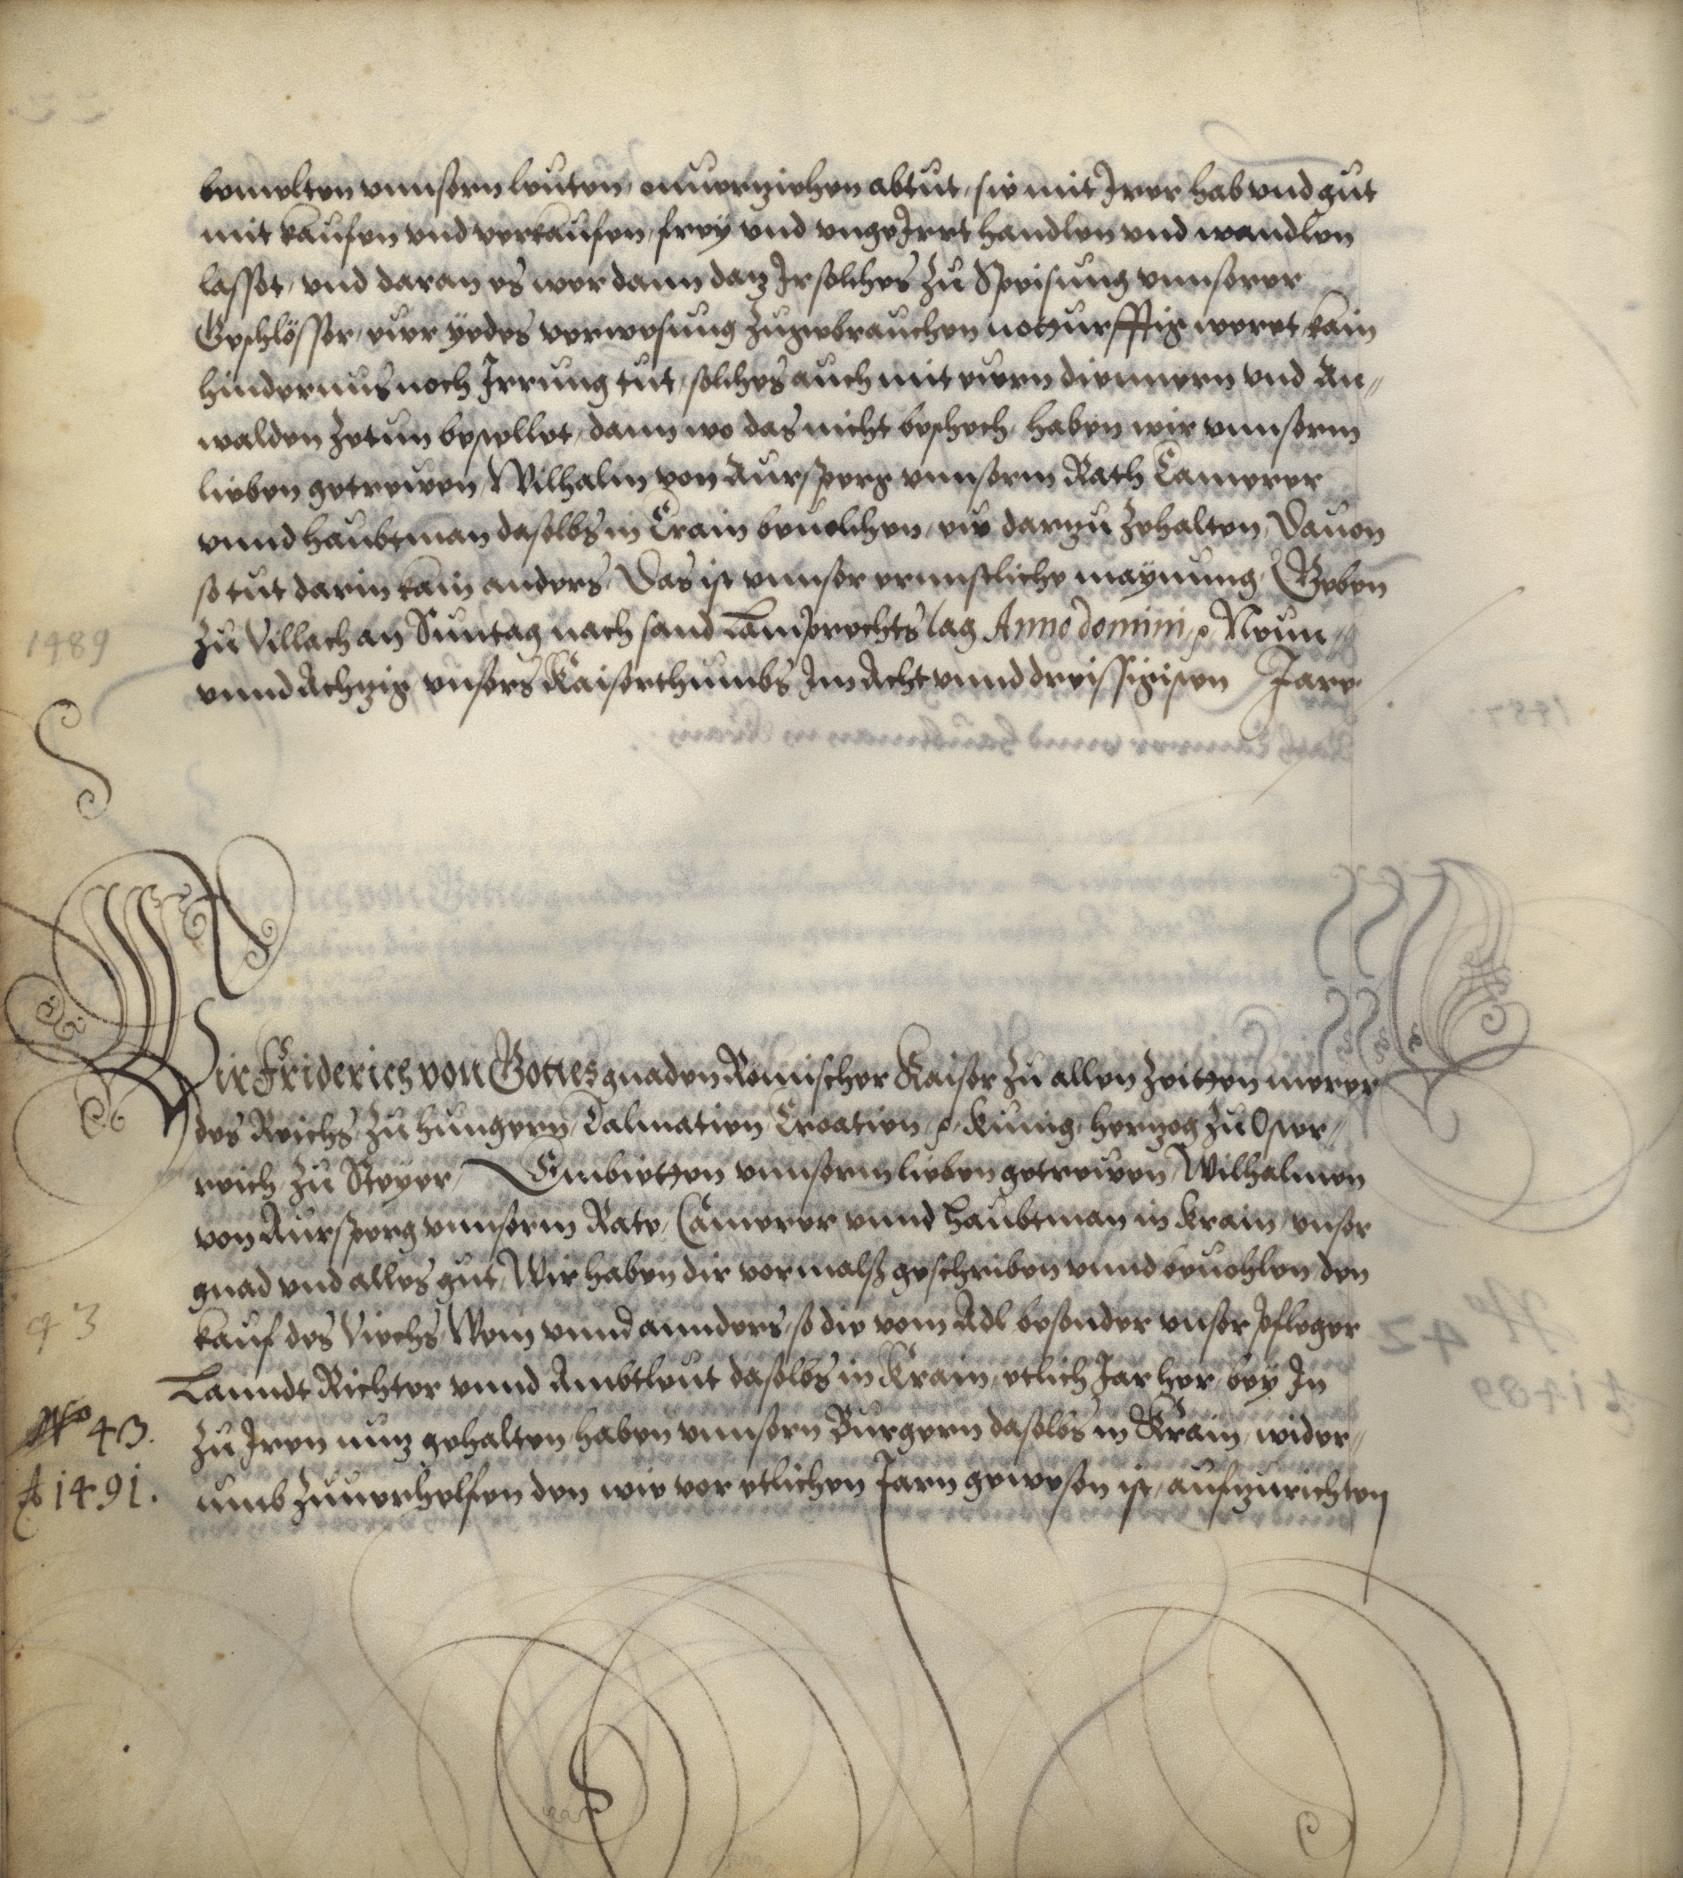 bemelten vnnsern leuten, onuerziehen abtut, sie mit Irer hab vnd gut
mit kaufen vnd verkaufen, frey vnd vngeIrrt handlen vnd wandlen
lasset, vnd daran es wer dann daz Ir solches zu Speisung vnnserer
Geschlösser, eur yedes verwesung zugebrauchen notturfftig weret, kain
hindernus noch Irrung tut, solches auch mit ewrn diennern vnd An„
walden zetun bestellet, dann wo das nicht beschech, haben wir vnnserm
lieben getrewen, Wilhalm von Aursperg vnnserm Rath Camerer
vnnd haubtman daselbs in Crain beuolchen, eue darzu zehalten, Dauon
so tut darin kain anders, Das ist vnnser ernnstliche maynung, Geben
zu Villach an Suntag nach sand Lamprechts tag Anno domini, Neun„
vnnd Achzig vnsers Kaiserthumbs Im Acht vnnd dreissigisten Jare
1489
Wir Friderich von Gottes gnaden Römischer Kaiser zu allen zeitten merer
des Reichs, zu hungern, Dalmatien, Croatien, Kunig, hertzog zu Oster„
reich, zu Steyer, Embietten vnnserm lieben getrewen, Wilhalmen
von Aursperg vnnserm Rate, Camerer vnnd haubtman in Krain, vnser
gnad vnd alles gut, Wir haben dir vormalß geschriben vnnd beuohlen den
kauf des Viechs, Wein vnnd annders, so die vom Adl besonder vnser pfleger
Lanndt Richter vnnd Ambtleut daselbs in Krain, etlich Jar her, bey In
zu Iren nuz gehalten, haben vnnsern Burgern daselbs in Krain, wider„
umb zuuerhelfen den wie vor etlichen Jarn gewesen ist, aufzurichten
43
No 43.
Ao 1491.